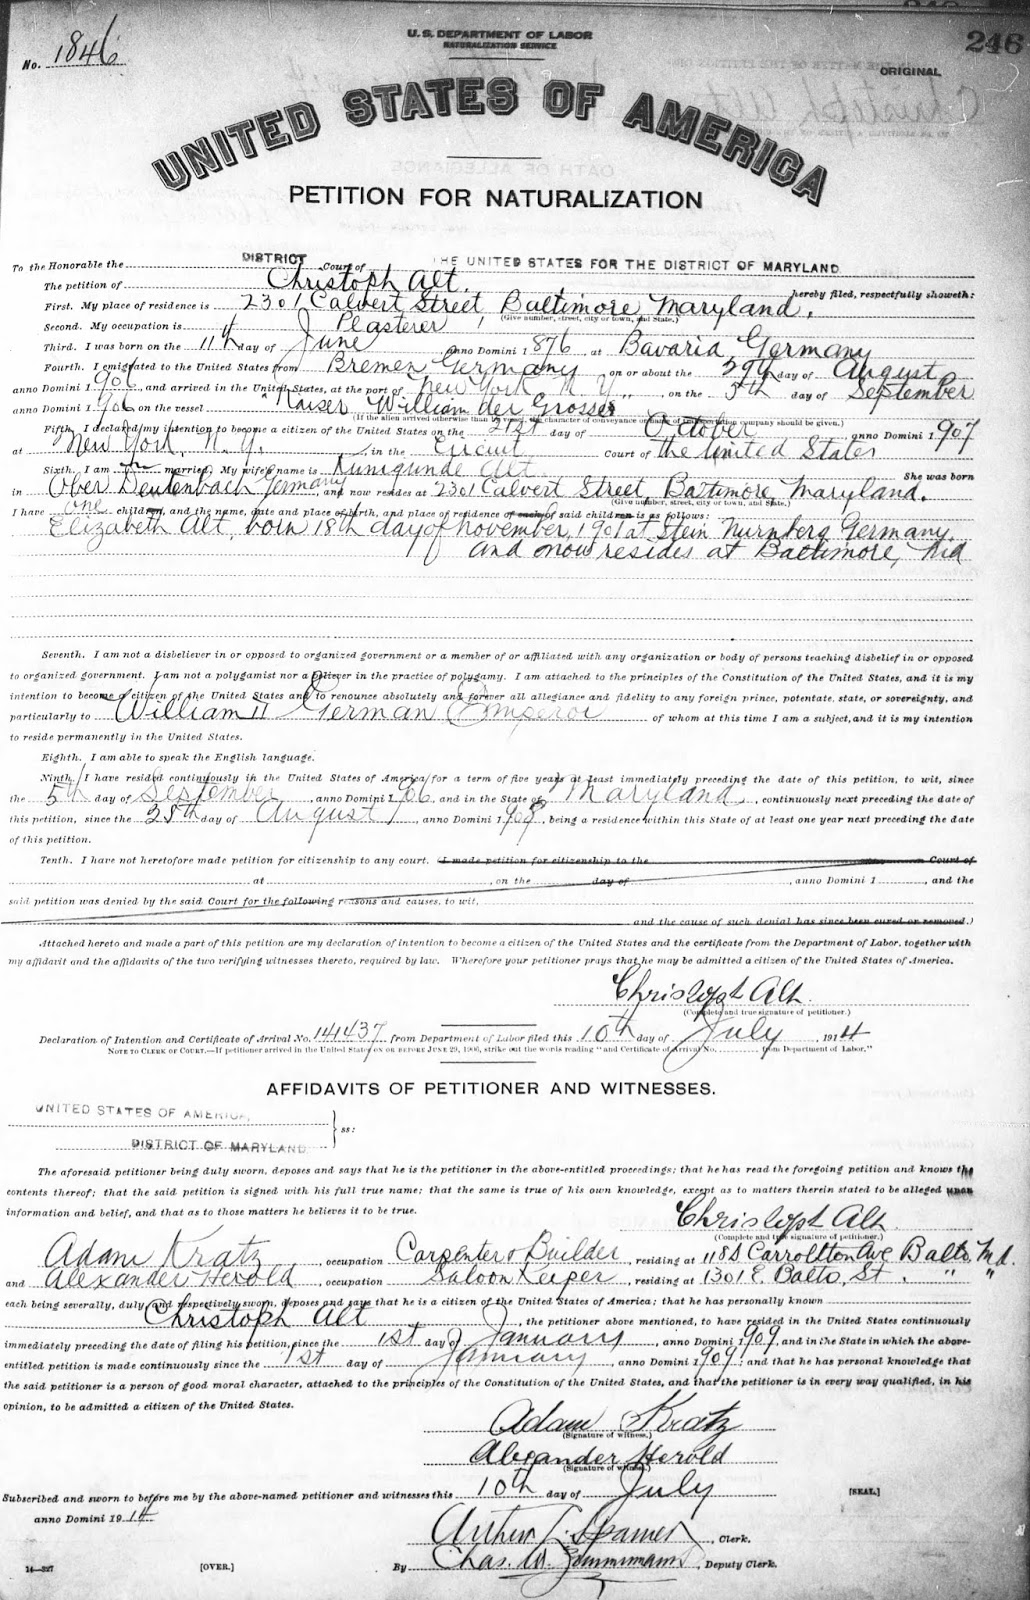 No. 1846
U.S. DEPARTMENT OF LABOR
NATURALIZATION SERVICE
246
ORIGINAL
UNITED STATES OF AMERICA
PETITION FOR NATURALIZATION
To the Honorable the DISTRICT Court of THE UNITED STATES FOR THE DISTRICT OF MARYLAND
The petition of Christoph Alt. hereby filed, respectfully showeth:
First. My place of residence is 2301 Calvert Street, Baltimore, Maryland.
(Give number, street, city or town, and State.)
Second. My occupation is Plasterer
Third. I was born on the 11th day of June anno Domini 1876, at Bavaria, Germany
Fourth. I emigrated to the United States from Bremen Germany on or about the 29th day of August
anno Domini 1906, and arrived in the United States, at the port of New York N.Y., on the 5th day of September
anno Domini 1906 on the vessel "Kaiser William der Grosser"
(If the alien arrived otherwise than by vessel, the character of conveyance or name of transportation company should be given.)
Fifth. I declared my intention to become a citizen of the United States on the 21st day of October anno Domini 1907
at New York, N.Y. in the Circuit Court of the United States
Sixth. I am married. My wife's name is Kunigunde Alt. She was born
in Ober Deutenbach Germany and now resides at 2301 Calvert Street, Baltimore Maryland.
(Give number, street, city or town, and State.)
I have one children, and the name, date and place of birth, and place of residence of each of said children is as follows:
Elizabeth Alt, born 18th day of November, 1901 at Stein Nurnberg Germany.
and now resides at Baltimore, Md
Seventh. I am not a disbeliever in or opposed to organized government or a member of or affiliated with any organization or body of persons teaching disbelief in or opposed
to organized government. I am not a polygamist nor a believer in the practice of polygamy. I am attached to the principles of the Constitution of the United States, and it is my
intention to become a citizen of the United States and to renounce absolutely and forever all allegiance and fidelity to any foreign prince, potentate, state, or sovereignty, and
particularly to William II German Emperor of whom at this time I am a subject, and it is my intention
to reside permanently in the United States.
Eighth. I am able to speak the English language.
Ninth. I have resided continuously in the United States of America for a term of five years at least immediately preceding the date of this petition, to wit, since
the 5th day of September, anno Domini 1906, and in the State of Maryland, continuously next preceding the date of
this petition, since the 25th day of August, anno Domini 1908, being a residence within this State of at least one year next preceding the date
of this petition.
Tenth. I have not heretofore made petition for citizenship to any court. (I made petition for citizenship to the Court of
at, on the day of, anno Domini 1, and the
said petition was denied by the said Court for the following reasons and causes, to wit,
and the cause of such denial has since been cured or removed.)
Attached hereto and made a part of this petition are my declaration of intention to become a citizen of the United States and the certificate from the Department of Labor, together with
my affidavit and the affidavits of the two verifying witnesses thereto, required by law. Wherefore your petitioner prays that he may be admitted a citizen of the United States of America.
Christoph Alt.
(Complete and true signature of petitioner.)
Declaration of Intention and Certificate of Arrival No. 141437, from Department of Labor filed this 10th day of July, 1914
NOTE TO CLERK OF COURT.—If petitioner arrived in the United States on or BEFORE JUNE 29, 1906, strike out the words reading "and Certificate of Arrival No. from Department of Labor."
AFFIDAVITS OF PETITIONER AND WITNESSES.
UNITED STATES OF AMERICA,
DISTRICT OF MARYLAND
ss:
The aforesaid petitioner being duly sworn, deposes and says that he is the petitioner in the above-entitled proceedings; that he has read the foregoing petition and knows the
contents thereof; that the said petition is signed with his full true name; that the same is true of his own knowledge, except as to matters therein stated to be alleged upon
information and belief, and that as to those matters he believes it to be true.
Christoph Alt
(Complete and true signature of petitioner.)
Adam Kratz, occupation Carpenter & Builder, residing at 118 S Carrollton Ave Balto. Md.
and Alexander Herold, occupation Saloon Keeper, residing at 1301 E. Balto. St. " "
each being severally, duly and respectively sworn, deposes and says that he is a citizen of the United States of America; that he has personally known
Christoph Alt, the petitioner above mentioned, to have resided in the United States continuously
immediately preceding the date of filing his petition, since the 1st day of January, anno Domini 1909, and in the State in which the above-
entitled petition is made continuously since the 1st day of January, anno Domini 1909; and that he has personal knowledge that
the said petitioner is a person of good moral character, attached to the principles of the Constitution of the United States, and that the petitioner is in every way qualified, in his
opinion, to be admitted a citizen of the United States.
Adam Kratz
(Signature of witness.)
Alexander Herold
(Signature of witness.)
Subscribed and sworn to before me by the above-named petitioner and witnesses this 10th day of July
[SEAL.]
anno Domini 1914
Arthur L. Spamer, Clerk.
14—327
[OVER.]
By Chas. W. Zimmermann, Deputy Clerk.